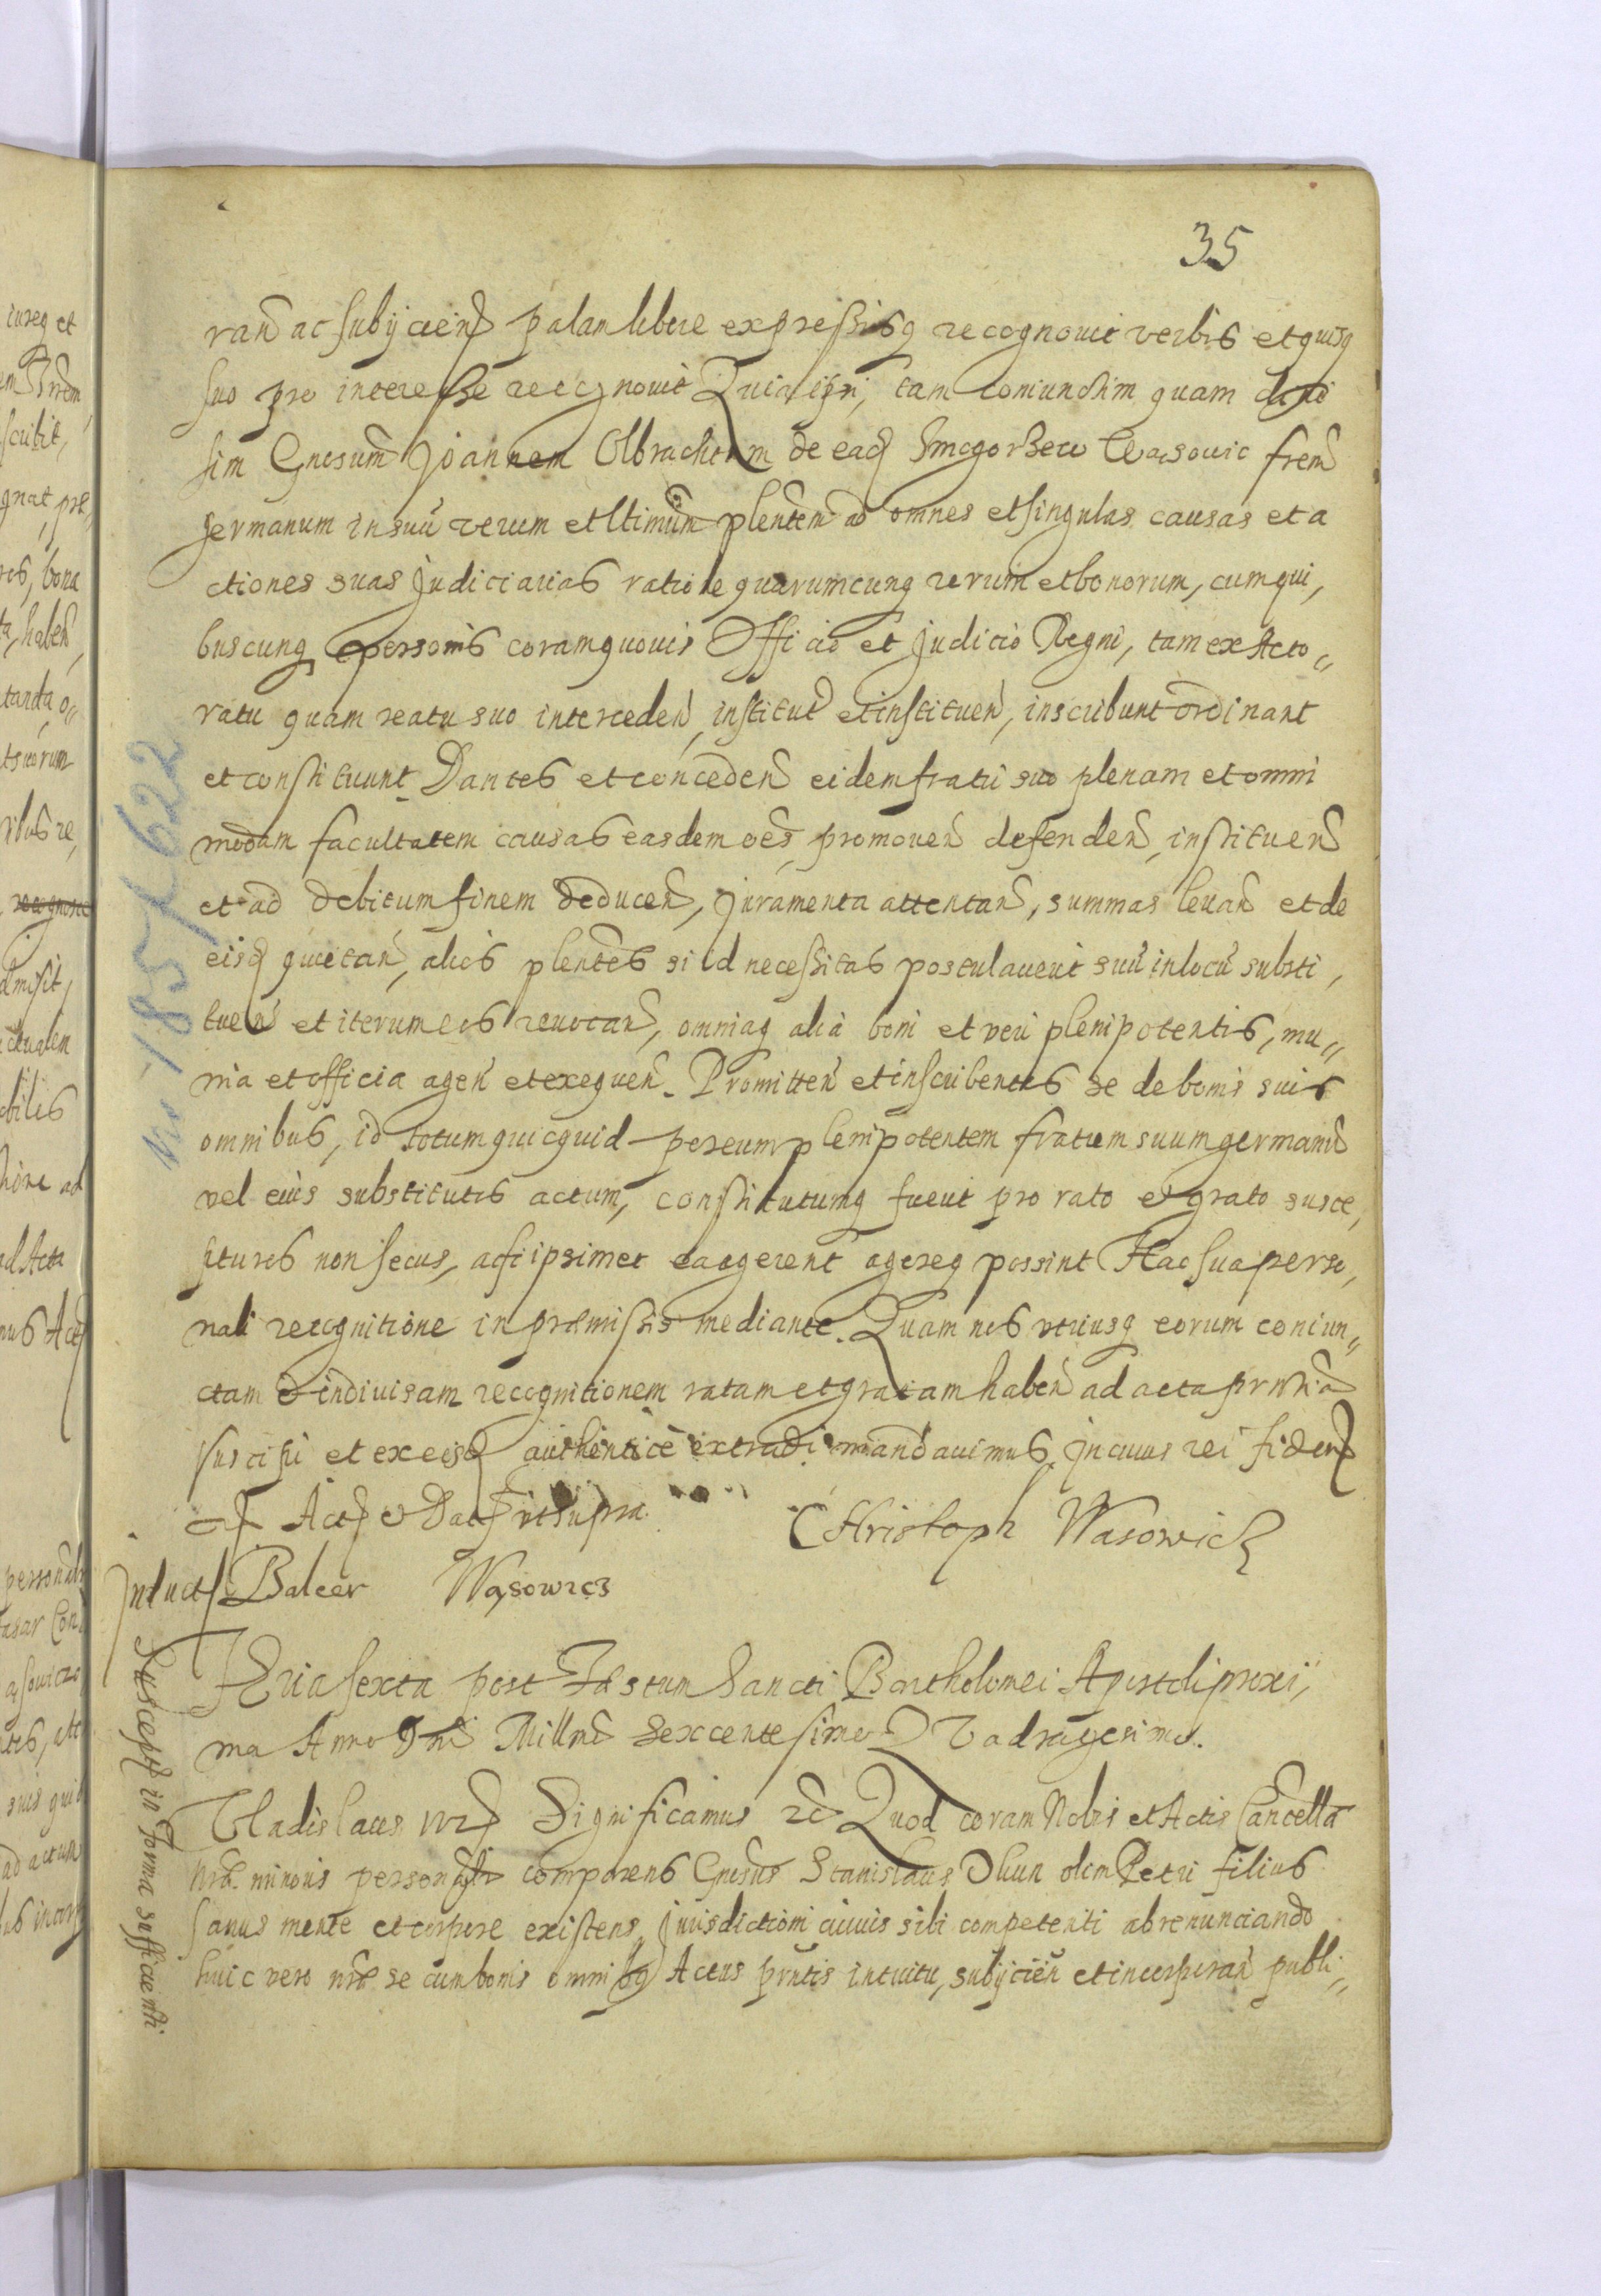 35
rand ac subijciend palam libere expressisq recognovit verbis et quisq
suo pro interesse recognovit Quia ipsi, tam coniunctim quam divi
sim Gnosum Joannem Olbrachtum de ead Smogorzew Wąsowic frem
germanum in suu verum et ltimum plentem ad omnes et singulas causas et a
ctiones suas judiciarias ratione quarumcunq rerum et bonorum, cum qui,
buscunq personis coram quovis Officio et judicio Regni, tam ex Acto„
ratu quam reatu suo interceden, institut et instituen, inscribunt ordinant
et constituunt. Dantes et conceden eidem fratri suo plenam et omni
modam facultatem causas easdem oes, promoven defenden, instituen
et ad debitum finem deducen, juramenta attentan, summas levan et de
eisd quietan, alios plentes si id necessitas postulaverit suu in locu substi,
tuen et iterum eos revocan, omniaq alia boni et veri plenipotentis, mu„
nia et officia agen et exequen. Promitten et inscribentes se de bonis suis
omnibus, id totum quicquid per eum plenipotentem fratrem suum germanu
vel eius substitutis actum, constitutumq fuerit pro rato et grato susce,
pturos non secus, ac si ipsimet ea agerent agereq possint Hac sua perso,
nali recognitione in præmissis mediante. Quam nos utriusq eorum coniun„
ctam et indivisam recognitionem ratam et gratam haben ad acta prntia
suscipi et ex eisd authentice extradi mandavimus. In cuius rei fidem
Act et Dat ut supra.
CHristoph Wasowicz
Induct Balcer Wąsowicz
Feria sexta post Festum Sancti Bartholomei Apostoli proxi,
ma Anno Dni Millmo Sexcentesimo Quadragesimo.
Suscept in forma sufficienti
Vladislaus IV Significamus &c Quod coram Nobis et Actis Cancella
nræ minoris personalr comparens Gnosus Stanislaus Okun olim Petri filius
sanus mente et corpore existens, jurisdictioni cuivis sibi competenti abrenunciando
huic vero nræ se cum bonis omnibq Actus prntis intuitu, subijcien et incorporan publi„